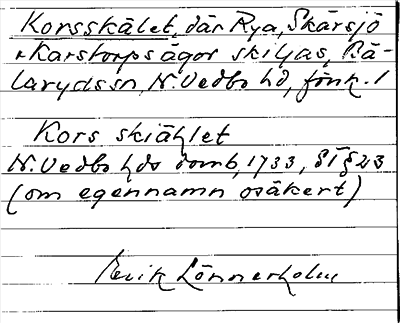 Korsskälet, där Rya, Skärsjö
o Karstorps ägor skiljas, Bä-
laryds sn, N. Vedbo hd, Jönk. l
Kors skiählet
N. Vedbo hds domb, 1733, ST § 23
(om egennamn osäkert)
Erik Lönnerholm